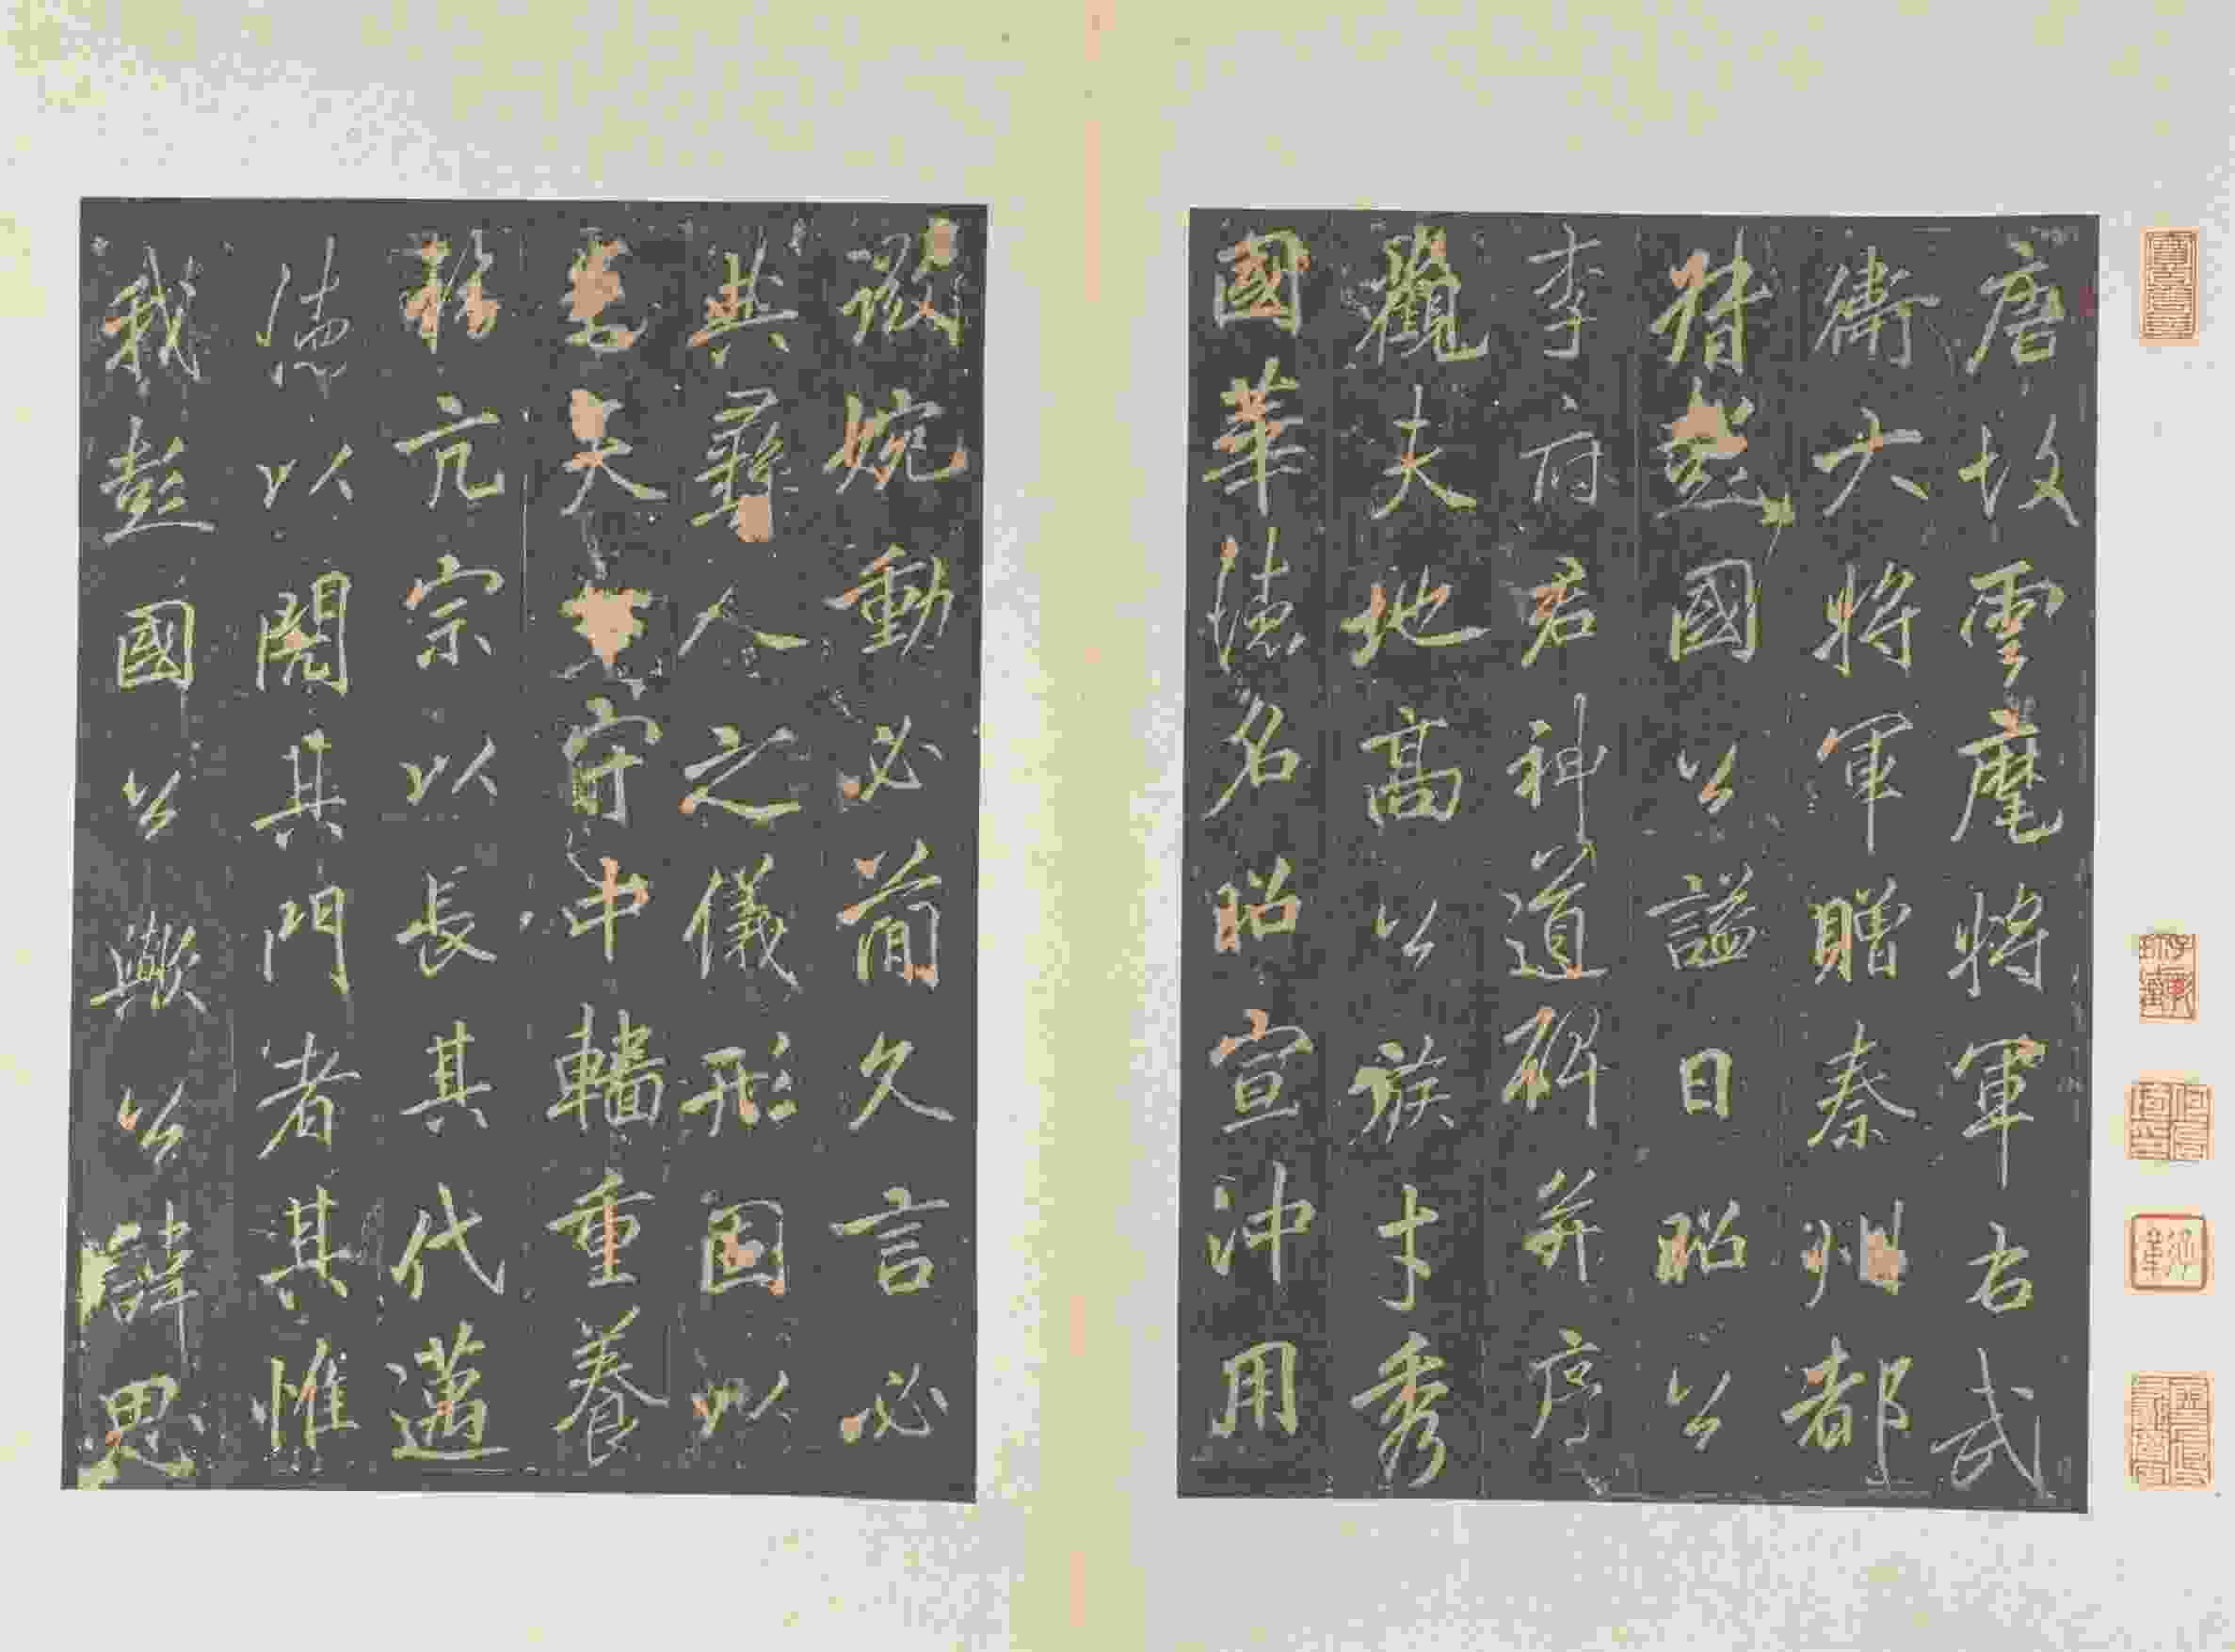 唐故雲麾將軍右武
衛大將軍贈秦州都
督彭國公諡曰昭公
李府君神道碑并序
觀夫地高公族才秀
國華德名昭宣沖用
微婉動必簡久言必
典彝人之儀形固以
守中轖重養
亢宗以長其代邁
德以閎其門者其惟
我彭國公歟公諱思